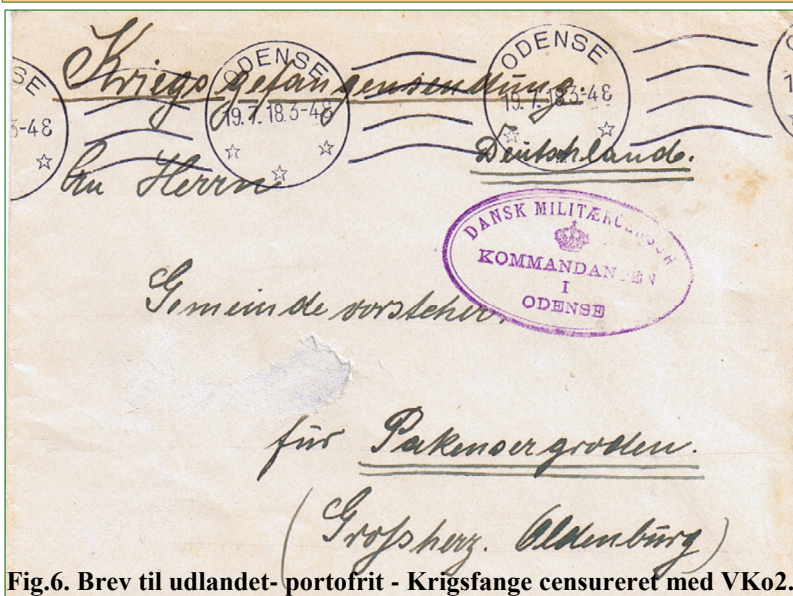 Kriegsgefangensendung.
ODENSE
19.7.18.3-4E
ODENSE
19.7.18.3-4E
SE
3-4E
Deutschland.
An Herrn
DANSK MILITÆRCENSUR
KOMMANDANTEN
I
ODENSE
Gemeindevorsteher.
für Pakensergroden.
(Grossherz. Oldenburg)
Fig.6. Brev til udlandet- portofrit - Krigsfange censureret med VKo2.